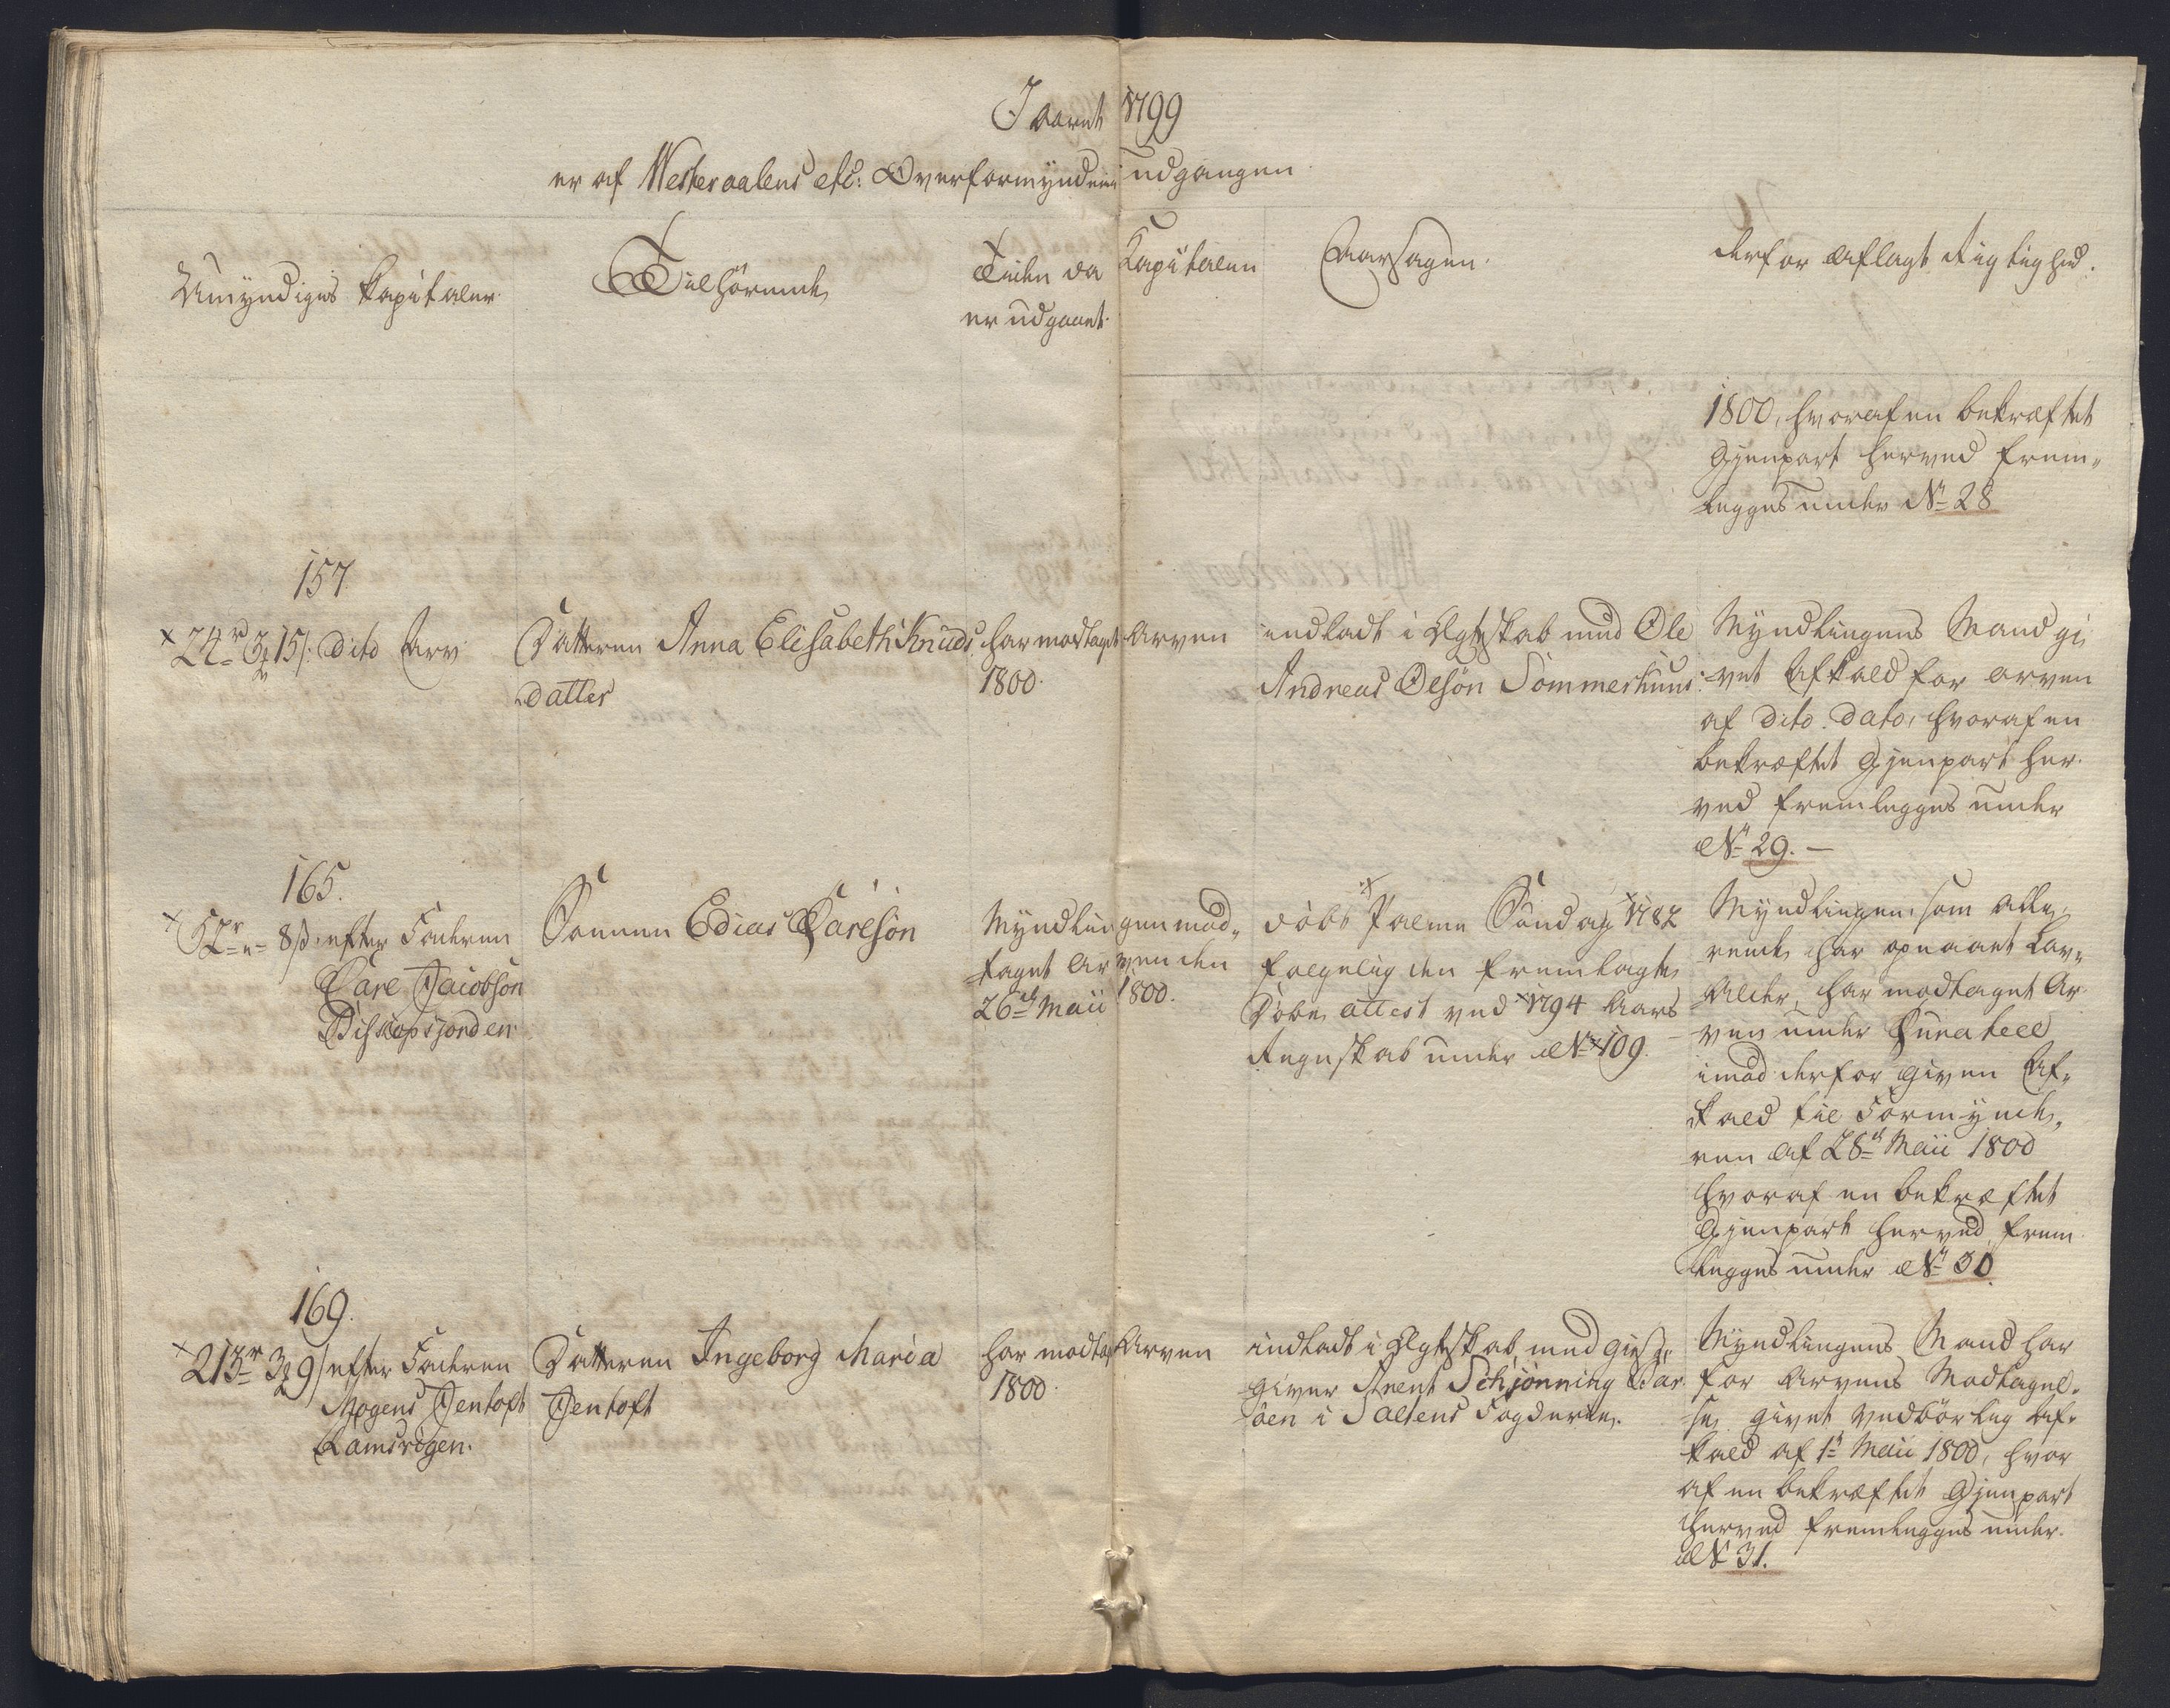 I Aaret 1799
er af Westeraalens etc: Overformynderie udgangen
Umyndiges Kapitaler
Tilhørende
Tiden da Kapitalen
er udgaaet
Aarsagen
derfor aflagt Rigtighed.
1800, hvoraf en bekræftet
Gjenpart herved frem-
legges under No 28
157
x 24r 3 15 s: dito Arv
Datteren Anna Elisabeth Knuds
datter
har modtaget Arven
1800.
indladt i Ægteskab med Ole
Andreas Olsøn Sommerhuus
Myndlingens Mand gi
vet Afkald for arven
af dito dato, hvoraf en
bekræftet Gjenpart her
ved fremlegges under
No 29. —
165.
x 52r - 8 s efter Faderen
Carl Jacobsøn
Biskopsjorden
Sønnen Edias Carlsøn
Myndlingen mod-
taget Arven den
26de Maii 1800.
døbt Palme Søndag 1782
følgelig den fremlagte
Døbe attest ved 1794 Aars
Regnskab under No 109.
Myndlingen, som alle-
rede har opnaaet Lav-
Alder, har modtaget Ar
ven under Curateel
imod derfor given Af-
kald til Formynde-
ren af 28de Maii 1800
hvoraf en bekræftet
Gjenpart herved frem
legges under No 30
169.
x 213r 3 9 s efter Faderen
Mogens Jentoft
Ramsvigen.
Datteren Ingeborg Maria
Jentoft
har modtaget Arven
1800
indladt i Ægteskab med Giest-
giver Arent Schjønning Bar
øen i Saltens Fogderie.
Myndlingens Mand har
for Arvens Modtagel-
se givet vedbørlig Af-
kald af 1te Maii 1800, hvor
af en bekræftet Gjenpart
herved fremlegges under
No 31.